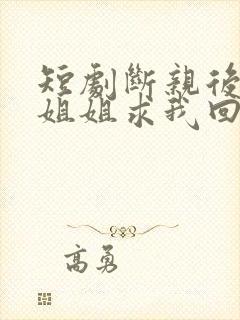 短劇斷親後
姐姐求我回
高勇